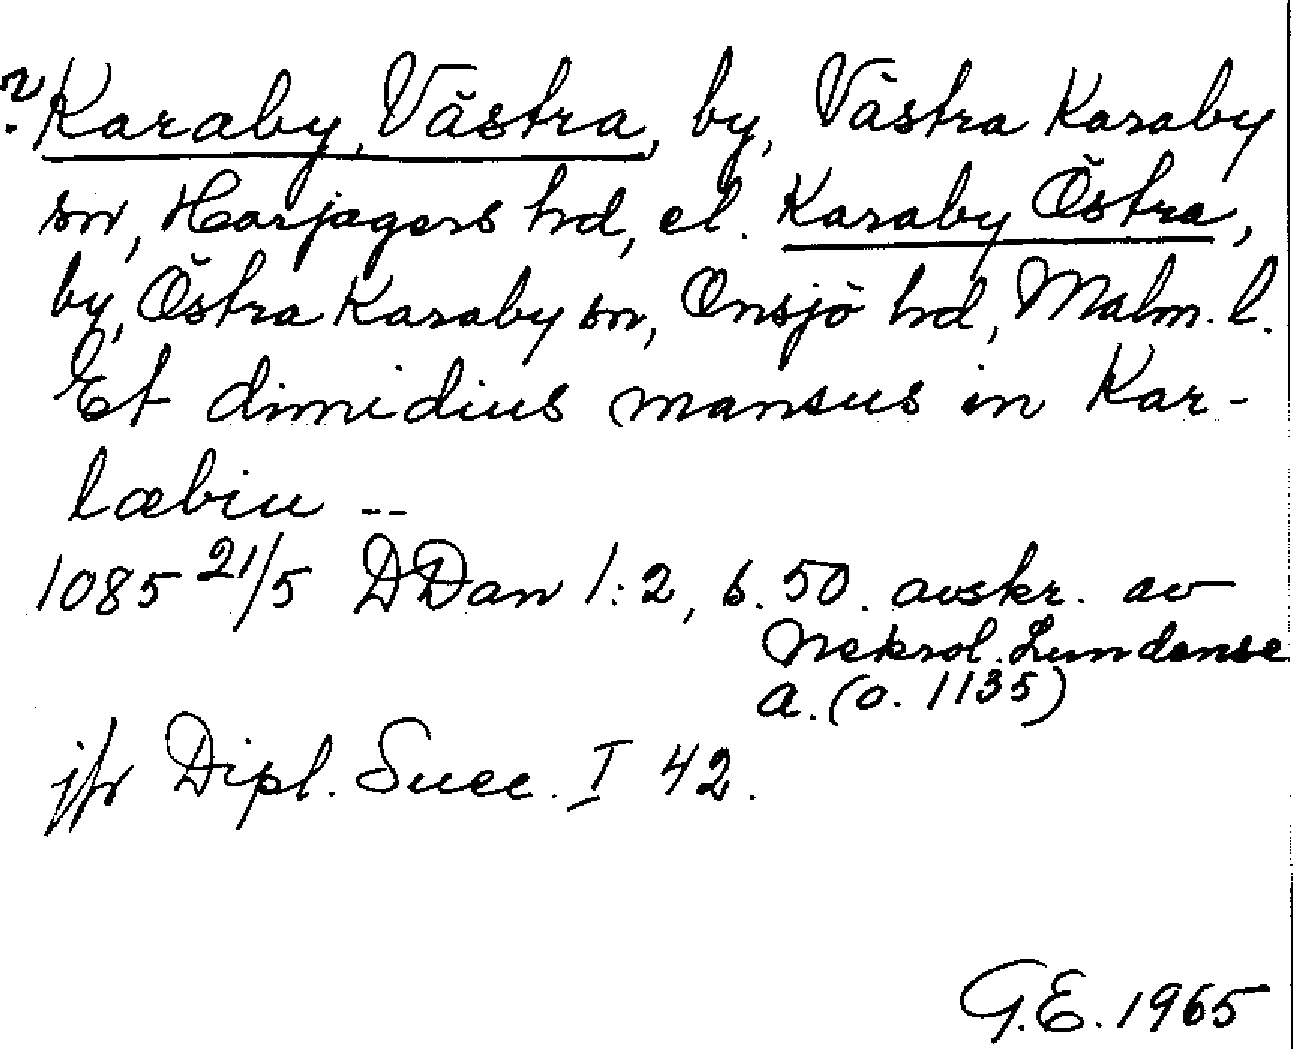 ? Karaby, Västra, by, Västra Karaby
sn, Harjagers hd, el. Karaby Östra,
by, Östra Karaby sn, Onsjö hd, Malm. l.
Et dimidius mansus in Kar-
læbiu --
1085 21/5 DDan 1:2, s. 50. avskr. av
Nekrol. Lundense
a. (o. 1135)
jfr Dipl. Suec. I 42.
G.E. 1965